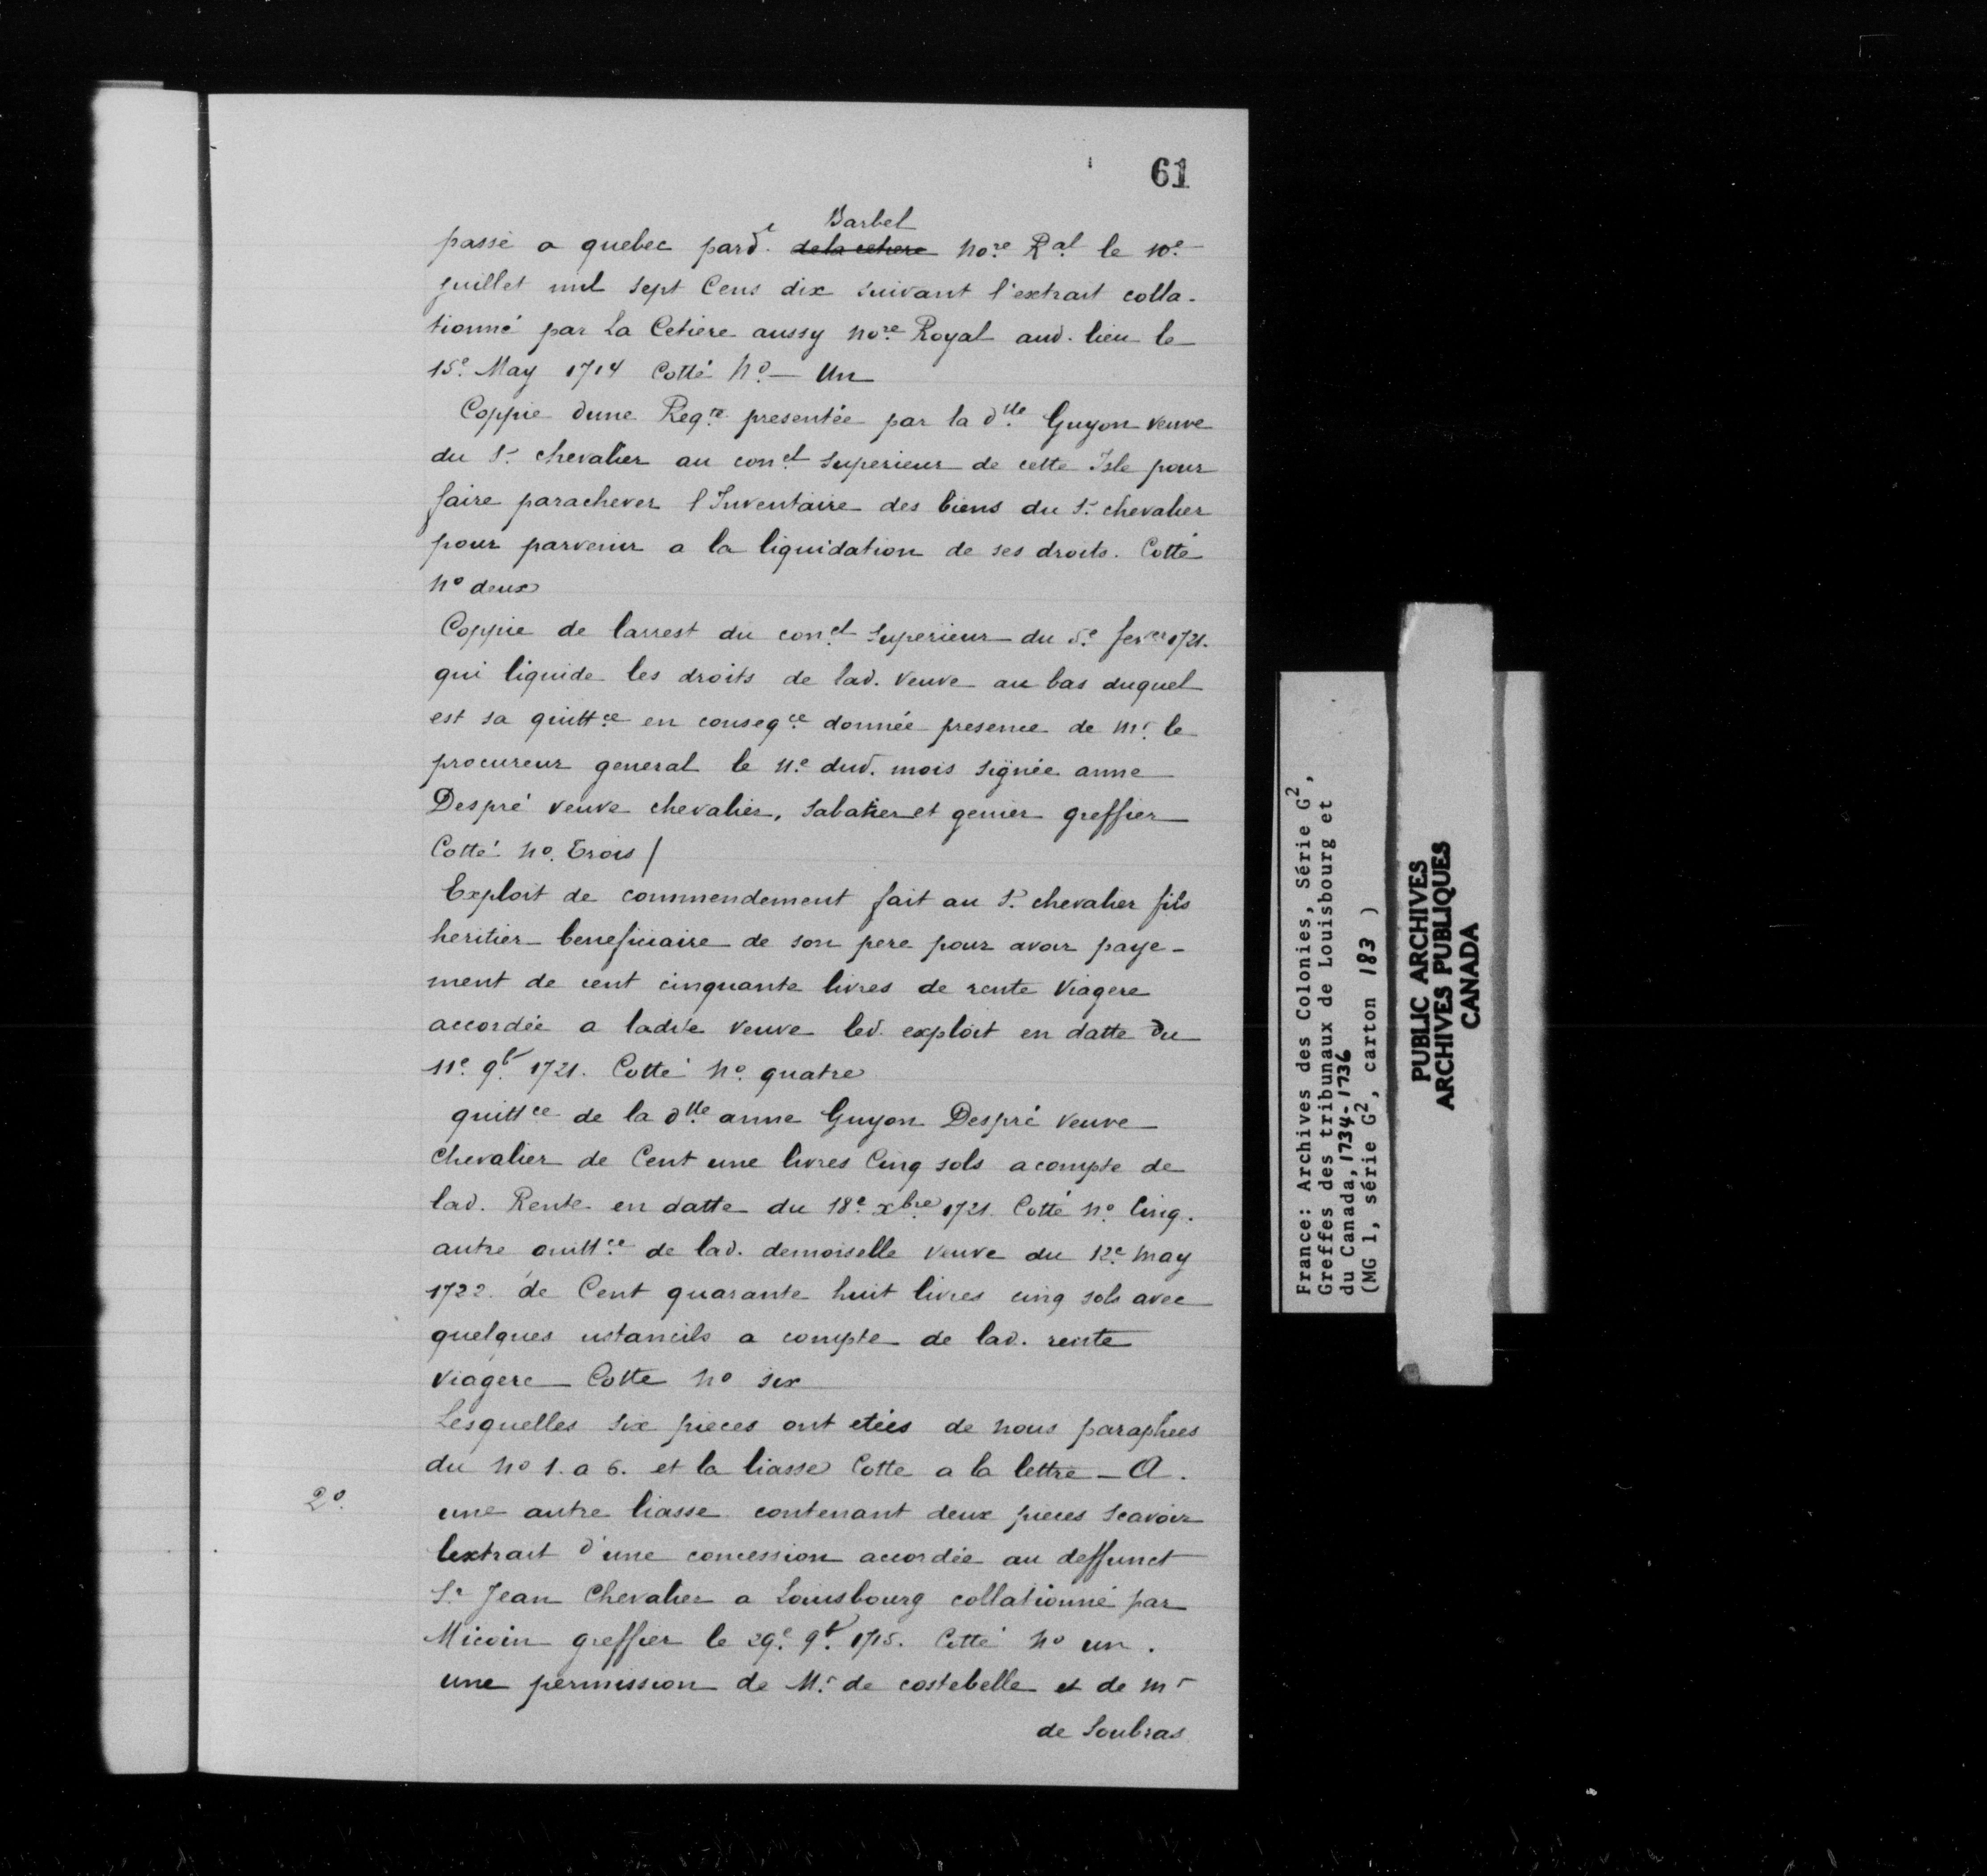 61
Barbel
passé a quebec pard.^t ~~de la cetiere~~ No.re R.al le 10.e
juillet mil sept Cens dix suivant l'extrait colla-
tionné par La Cetiere aussy No.re Royal aud. lieu le
15.e May 1714 Cotté N.o — Un
Coppie dune Req.te presentée par la d.lle Guyon veuve
du S.r chevalier au con.el Superieur de cette Isle pour
faire parachever l'Inventaire des biens du S.r chevalier
pour parvenir a la liquidation de ses droits. Cotté
N.o deux
Coppie de larrest du con.el Superieur du 5.e fev.er 1721.
qui liquide les droits de lad. veuve au bas duquel
est sa quitt.ce en conseq.ce donnée presence de M.r le
procureur general le 11.e dud. mois signée anne
Despré veuve chevalier, Sabatier et genier greffier
Cotté No. Trois /
Exploit de commendement fait au S.r chevalier fils
heritier beneficiaire de son pere pour avoir paye-
ment de cent cinquante livres de rente Viagere
accordée a ladite veuve led. exploit en datte du
11.e 9.b 1721. Cotté N.o quatre
quitt.ce de la d.lle anne Guyon Despré veuve
Chevalier de Cent une livres Cinq sols acompte de
lad. Rente en datte du 18.e x.bre 1721 Cotté N.o Cinq.
autre quitt.ce de lad. demoiselle veuve du 12.e May
1722. de Cent quarante huit livres cinq sols avec
quelques ustancils a compte de lad. rente
viagere Cotte No six
Lesquelles six pieces ont etées de nous paraphees
du No 1. a 6. et la liasse Cotte a la lettre — A.
2.o
une autre liasse contenant deux pieces Scavoir
lextrait d'une concession accordée au deffunct
S.r Jean Chevalier a Louisbourg collationné par
Micoin greffier le 29.e 9.b 1715. Cotté No un.
une permission de M.r de costebelle et de M.r
de Soubras
France: Archives des Colonies, Série G²,
Greffes des tribunaux de Louisbourg et
du Canada, 1734-1736
(MG 1, série G², carton 183 )
PUBLIC ARCHIVES
ARCHIVES PUBLIQUES
CANADA